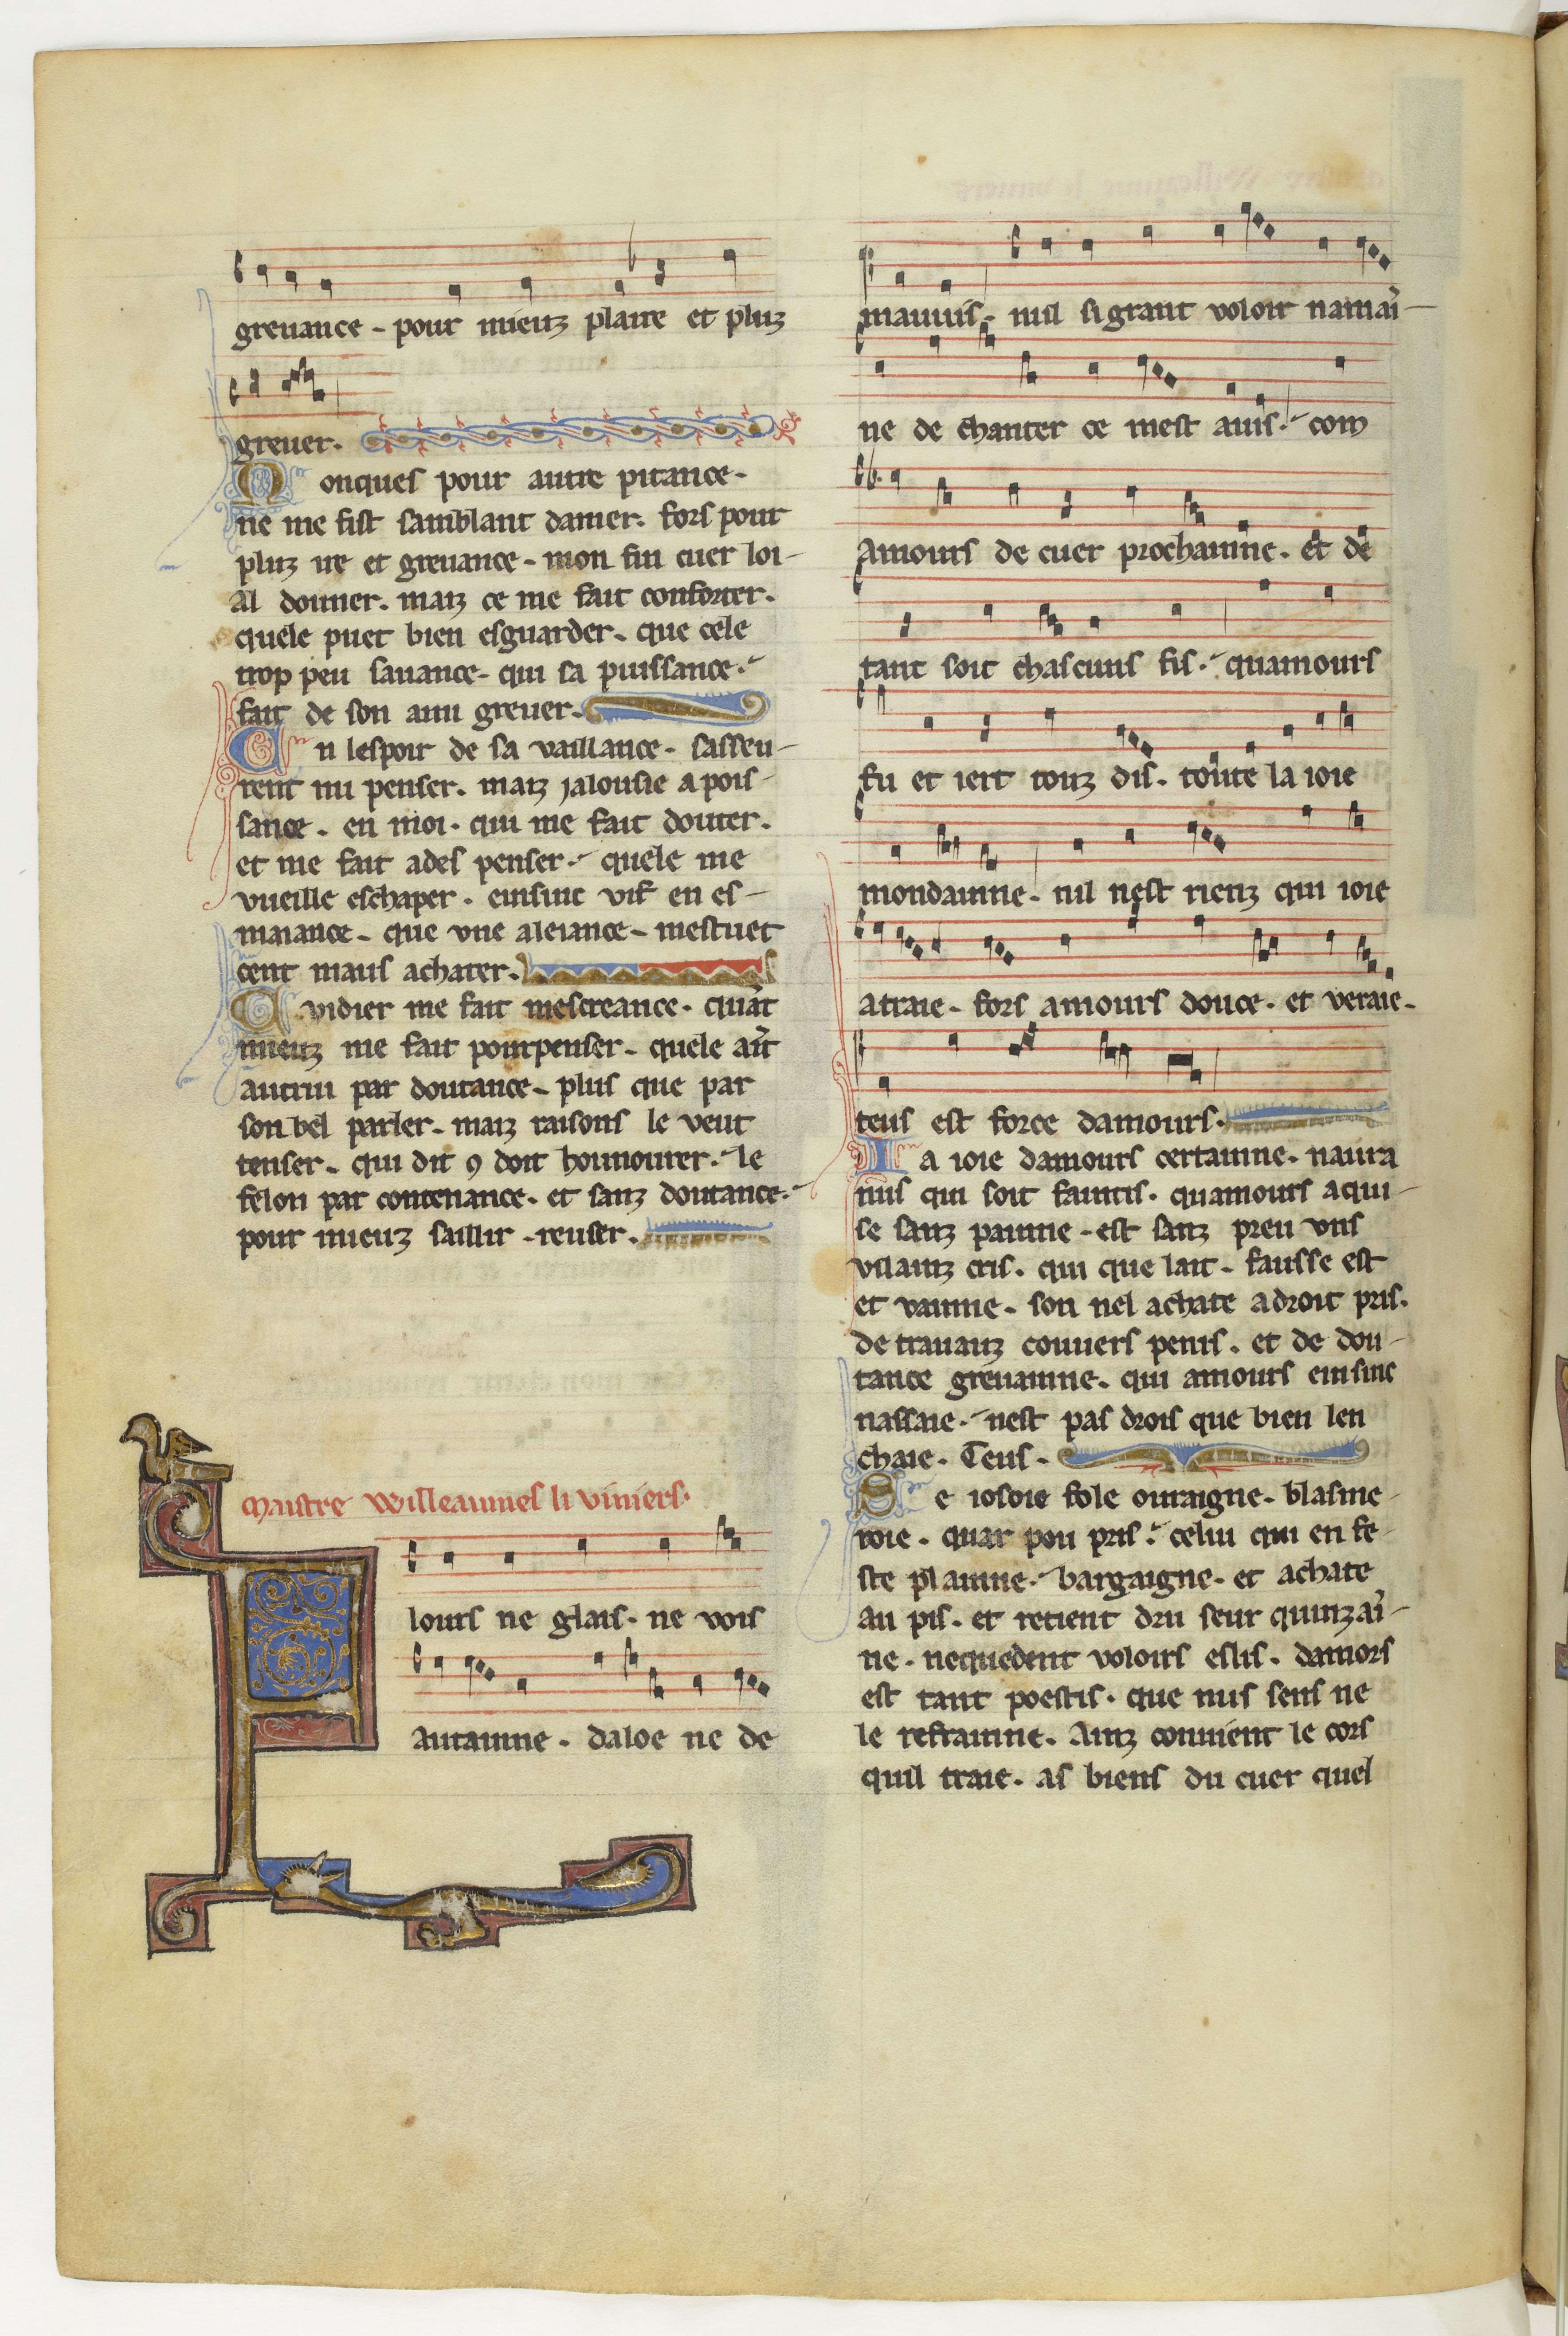 greuance - pour mieuz plaire et pluz
greuer.
Qonques pour autre pitance.
ne me fist samblant damer. fors pour
pluz ire et greuance - mon fin cuer loi-
al donner. maiz ce me fait conforter.
quele puet bien esguarder. que cele
trop peu sauance - qui sa puissance.
fait de son ami greuer.
En lespoir de sa vaillance. sasseu-
rent mi penser. maiz jalousie a pois-
sance. en moi. qui me fait douter.
et me fait ades penser. quele me
vueille eschaper. einsinc vif en es-
maiance - que vne aleiance - mestuet
cent maus achater.
Cuidier me fait mescreance. quāt
mieuz me fait pourpenser - quele aīt
autrui par doutance - plus que par
son bel parler - maiz raisons le veut
tenser - qui dit ꝯ doit hounourer. le
felon par contenance. et sanz doutance.
pour mieuz saillir - reuser.
Maistre Willeaumes li viniers.
Flours ne glais. ne vois
autainne. daloe ne de
mauuis. nul si grant voloir namai-
ne de chanter ce mest auis. com
amours de cuer prochainne. et de
tant soit chascuns fis. quamours
fu et iert touz dis. toute la ioie
mondainne. nil nest rienz qui ioie
atraie. fors amours douce. et veraie.
teus est force damours.
La ioie damours certainne. naura
nus qui soit faintis. quamours aqui-
se sanz painne - est sanz preu vns
vilainz cris. qui que lait - fausse est
et vainne. son nel achate adroit pris.
de trauauz couuers penis. et de dou-
tance greuainne. qui amours einsinc
nassaie. nest pas drois que bien len
chaie. Teus.
Se iosoie fole ouraigne. blasme-
roie. quar pou pris. celui qui en fe-
ste plainne. bargaigne. et achate
au pis. et retient dru seur quinzai-
ne. nequedent voloirs eslis. damors
est tant poestis. que nus sens ne
le refrainne. Ainz conuient le cors
quil traie. as biens du cuer quel